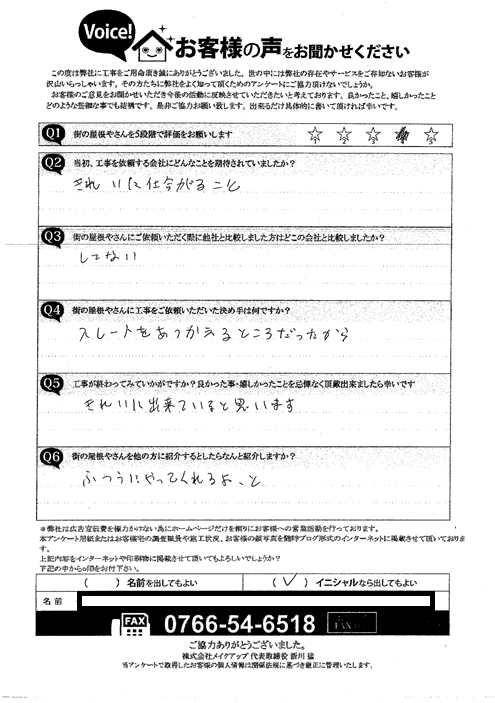 Voice!
お客様の声をお聞かせください
この度は弊社に工事をご用命頂き誠にありがとうございました。世の中には弊社の存在やサービスをご存知ないお客様が
沢山いらっしゃいます。その方たちに弊社をよく知って頂くためのアンケートにご協力頂けないでしょうか。
お客様のご意見をお聞かせいただき今後の活動に反映させていただきたいと考えております。良かったこと、嬉しかったこと
どのような些細な事でも結構です。是非ご協力お願い致します。出来るだけ具体的に書いて頂ければ幸いです。
Q1 街の屋根やさんを5段階で評価をお願いします
1 2 3 5
Q2 当初、工事を依頼する会社にどんなことを期待されていましたか?
きれいに仕今がること
Q3 街の屋根やさんにご依頼いただく際に他社と比較しました方はどこの会社と比較しましたか?
してない
Q4 街の屋根やさんに工事をご依頼いただいた決め手は何ですか?
スレートをあつかえるところだったから
Q5 工事が終わってみていかがですか?良かった事・嬉しかったことを忌憚なく頂戴出来ましたら幸いです
きれいに出来ていると思います
Q6 街の屋根やさんを他の方に紹介するとしたらなんと紹介しますか?
ふつうにやってくれるよ、と
※弊社は広告宣伝費を極力かけない為にホームページだけを頼りにお客様への営業活動を行っております。
本アンケート用紙またはお客様宅の調査風景や施工状況、お客様の顔写真を随時ブログ形式のインターネットに掲載させて頂いております。
上記内容をインターネットや印刷物に掲載させて頂いてもよろしいでしょうか?
下記の中から○印をお付下さい。
( ) 名前を出してもよい
(✓) イニシャルなら出してもよい
名前
FAX 0766-54-6518
ご協力ありがとうございました。
株式会社メイクアップ 代表取締役 新川 猛
当アンケートで取得したお客様の個人情報は関係法規に基づき厳正に管理いたします。